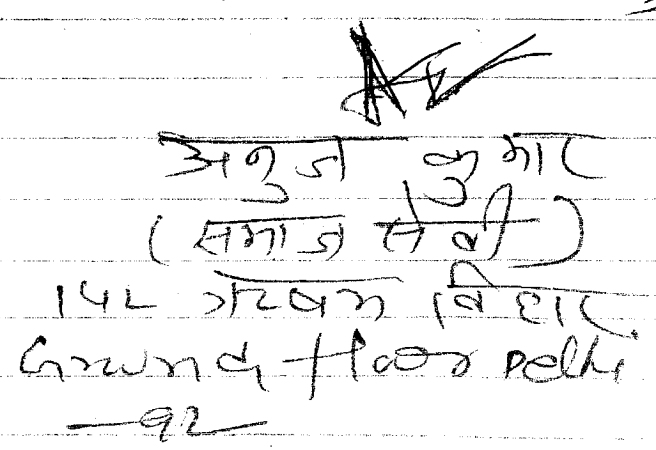 अनुज कुमार
(समाज सेवी)
142 ऋषभ विहार
Ground floor Delhi
-92